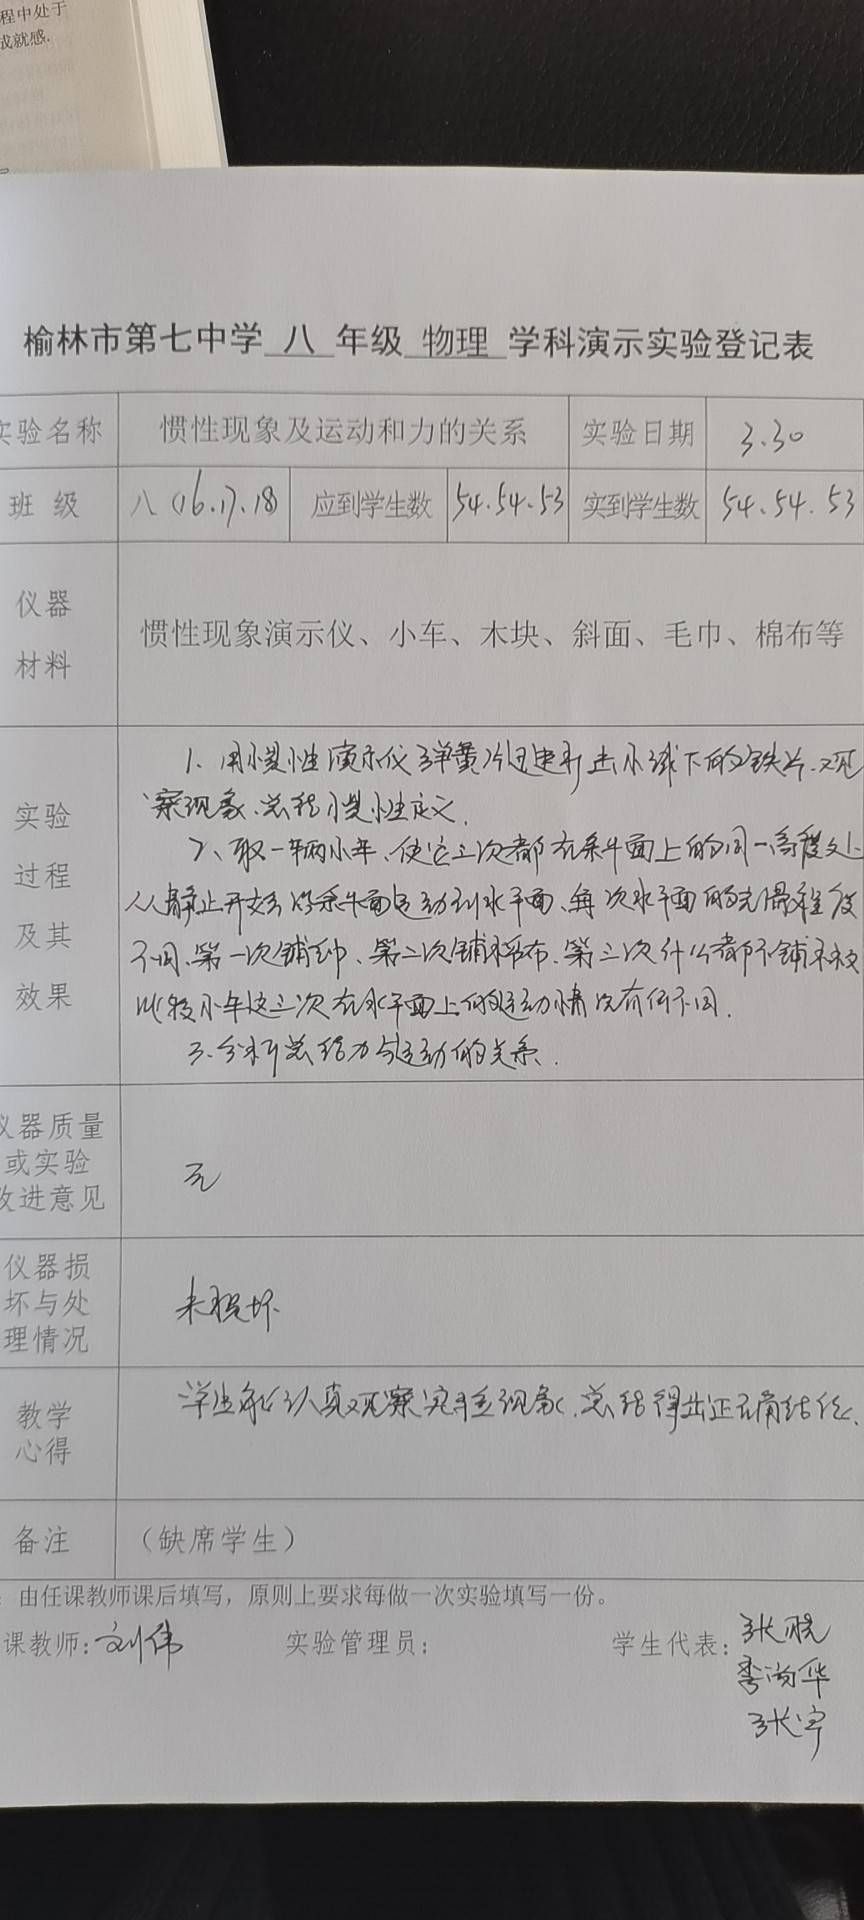 程中处于
成就感.
榆林市第七中学 八 年级 物理 学科演示实验登记表
实验名称 惯性现象及运动和力的关系 实验日期 3.30
班 级 八(16.17.18) 应到学生数 54.54.53 实到学生数 54.54.53
仪器
材料
惯性现象演示仪、小车、木块、斜面、毛巾、棉布等
实验
过程
及其
效果
1、用惯性演示仪弹簧片迅速打击小球下的铁片.观
察现象、总结惯性定义.
2、取一辆小车、使它三次都在斜面上的同一高度处
从静止开始沿斜面运动到水平面、每次水平面的光滑程度
不同、第一次铺毛巾、第二次铺棉布、第三次什么都不铺
比较小车这三次在水平面上的运动情况有何不同.
3.分析总结力与运动的关系.
仪器质量
或实验
改进意见
无
仪器损
坏与处
理情况
未损坏
教学
心得
学生们认真观察实验现象.总结得出正确结论、
备注 （缺席学生）
：由任课教师课后填写，原则上要求每做一次实验填写一份。
课教师：刘伟 实验管理员： 学生代表：
张宇